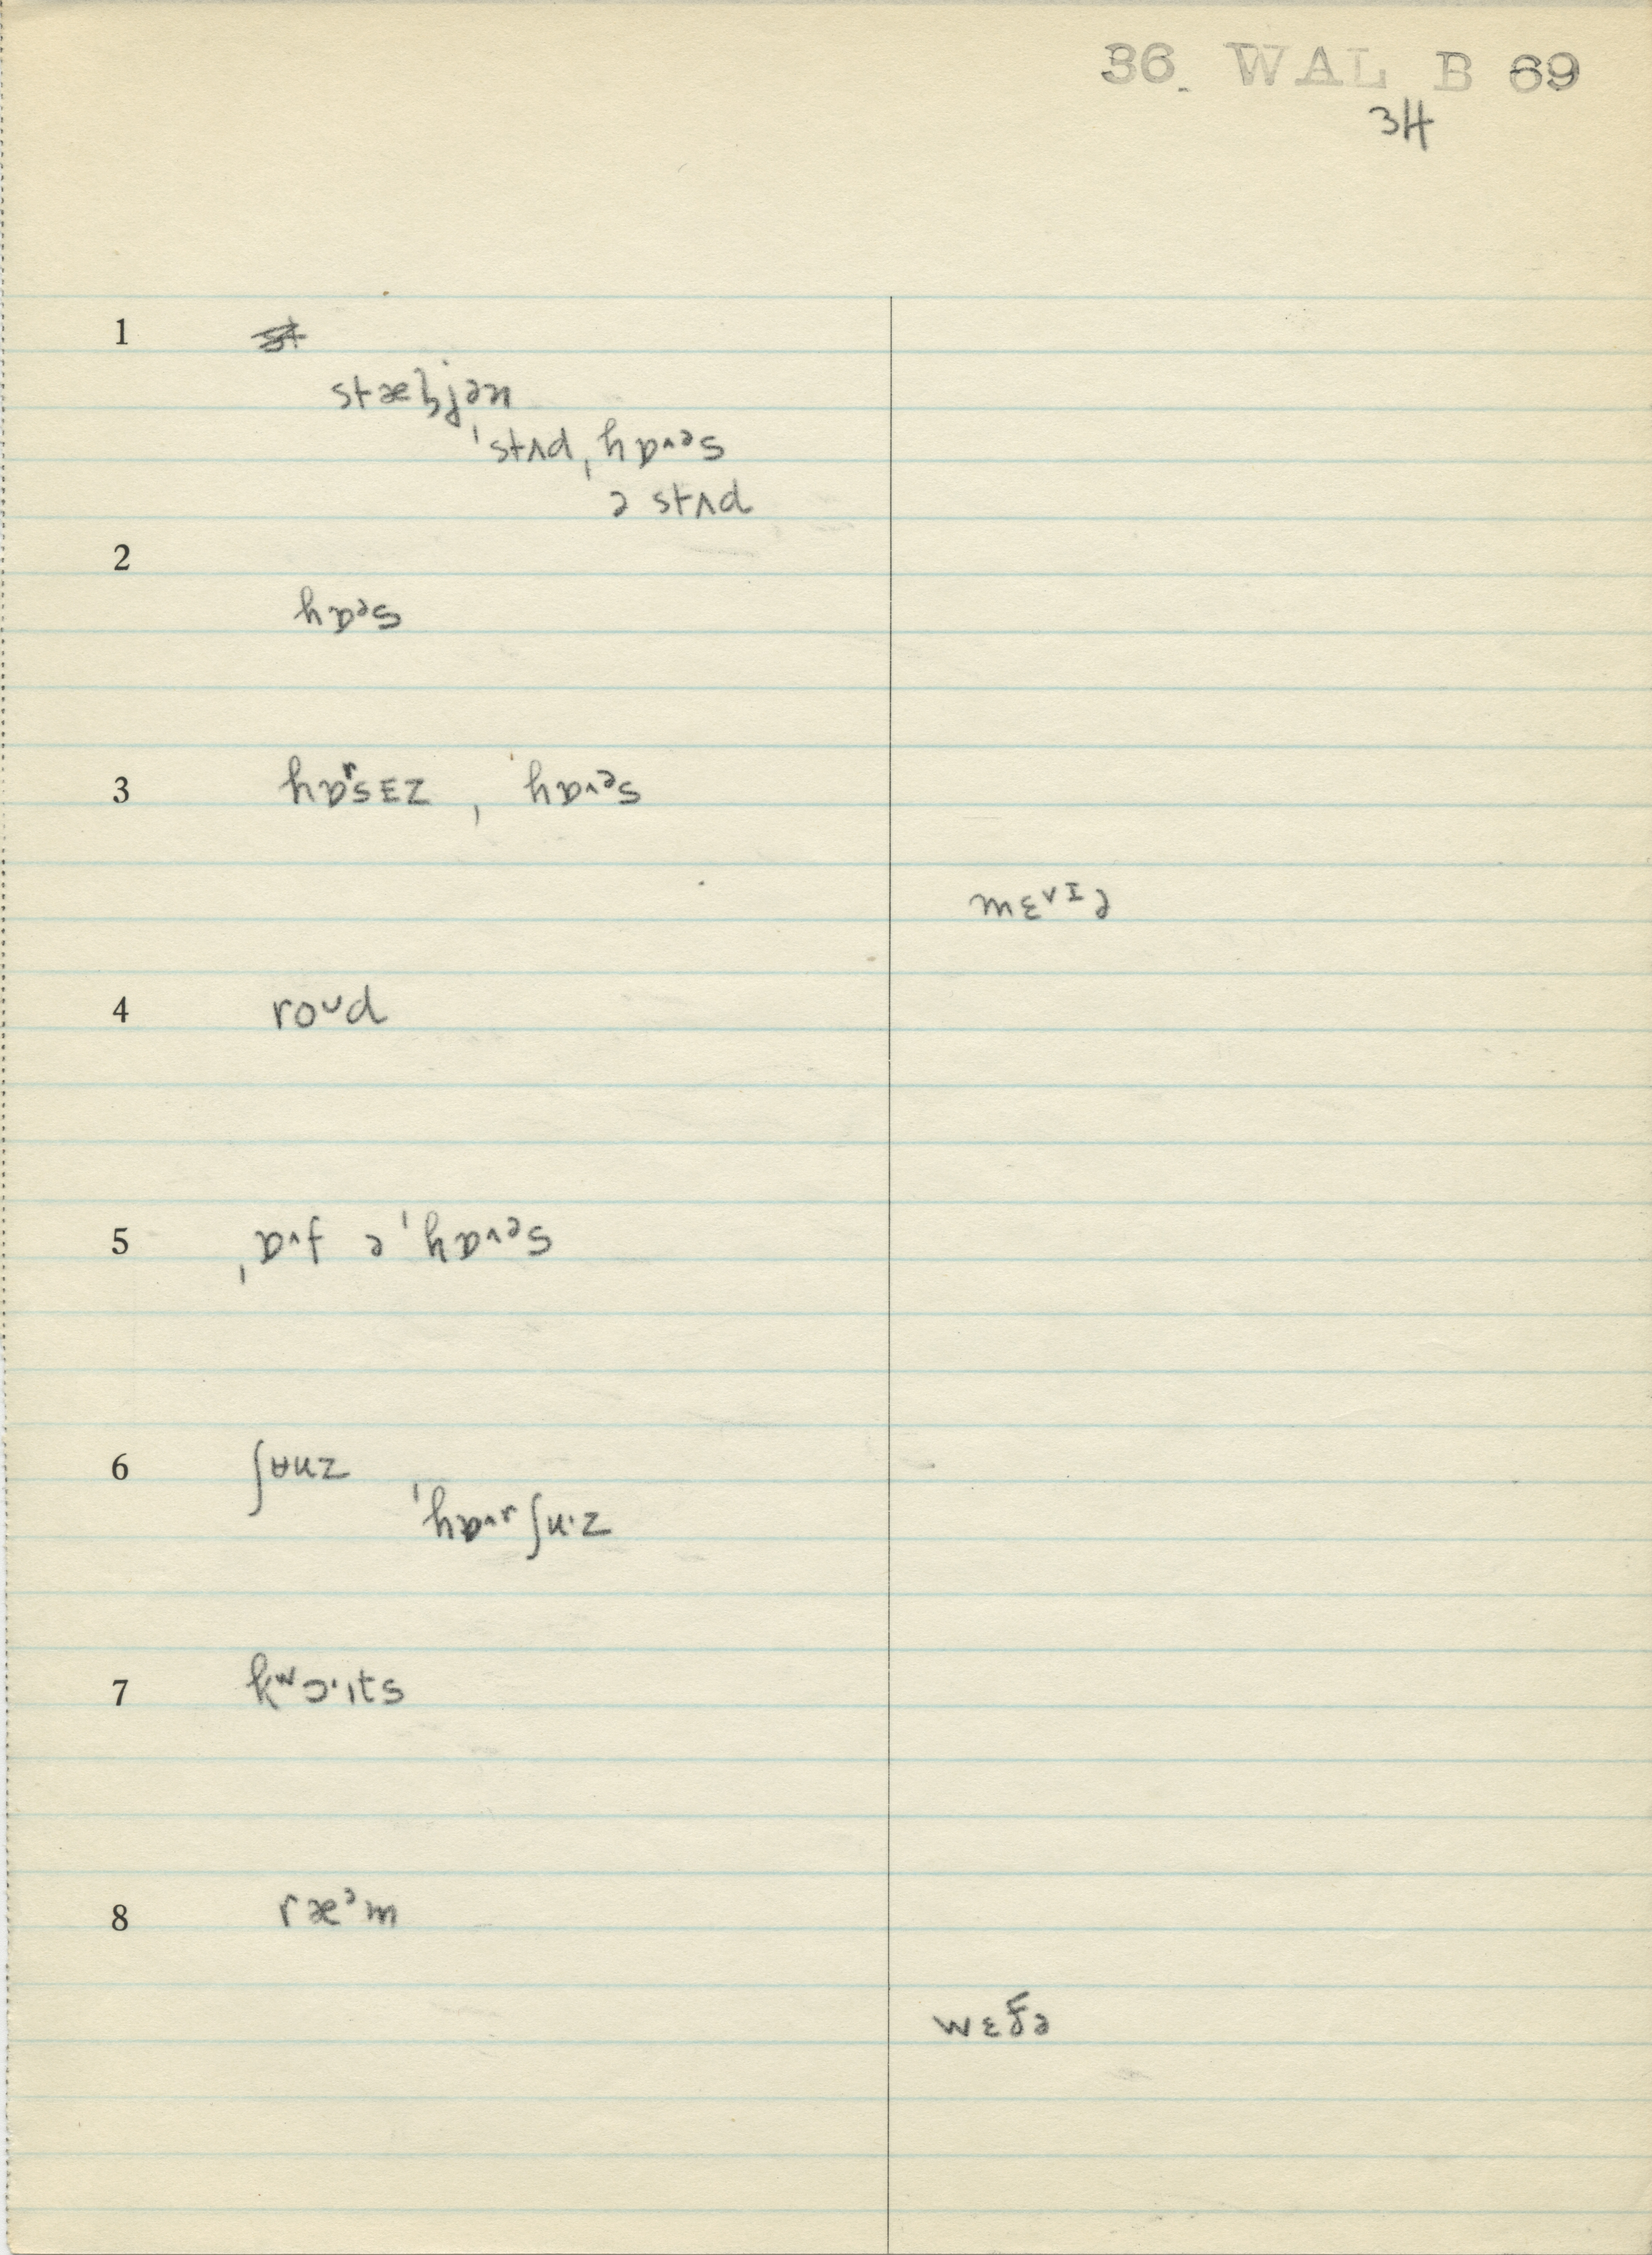 36. WAL B 69
3H
1
stæɫjən
ˌstʌd ˌhɒˑᵊs
ə stʌd
2
hɒᵊs
3 hɒʳsɛz , ˈhɒˑᵊs
mɛˑɪə
4 roʊd
5 ˌɒˑf ə ˈhɒˑᵊs
6 ʃʉuz
ˈhɒˑʳʃuˑz
7 kʷɔˑɪts
8 ræᵊm
wɛðə